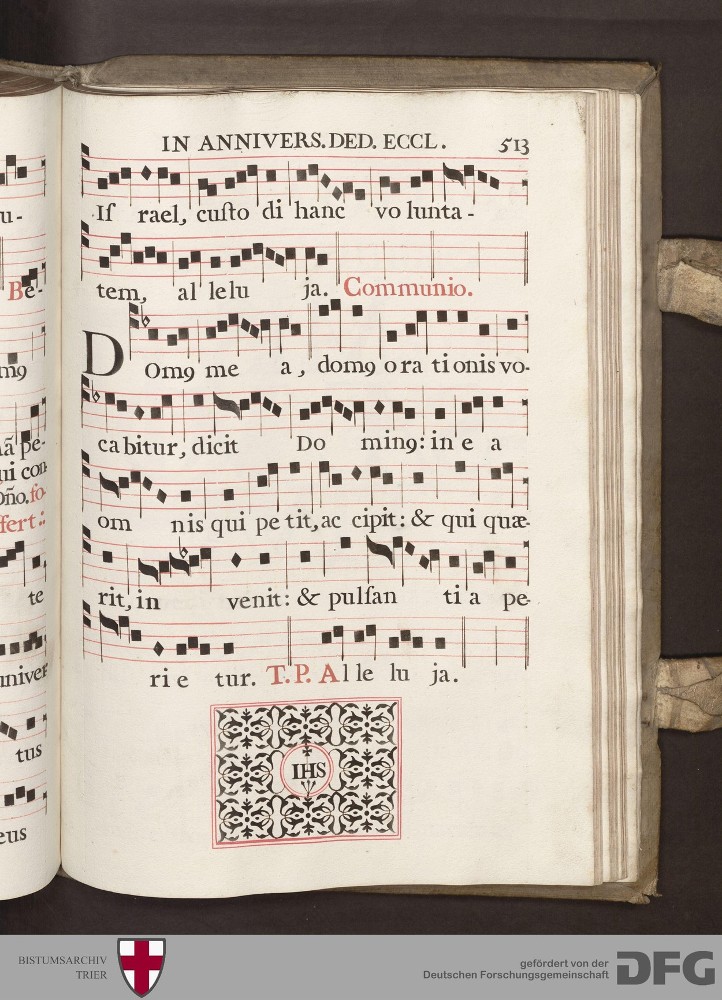 IN ANNIVERS. DED. ECCL. 513
Iſ rael, cuſto di hanc vo lunta -
tem, al le lu ja. Communio.
DOmꝰ me a, domꝰ o ra ti onis vo-
ca bitur, dicit Do minꝰ: in e a
om nis qui pe tit, ac cipit: & qui quæ-
rit, in venit: & pulſan ti a pe-
ri e tur. T.P. Al le lu ja.
IHS
u-
Be-
mꝰ
pe-
qui con
fert:
te
univer
tus
eus
BISTUMSARCHIV
TRIER
gefördert von der
Deutschen Forschungsgemeinschaft
DFG